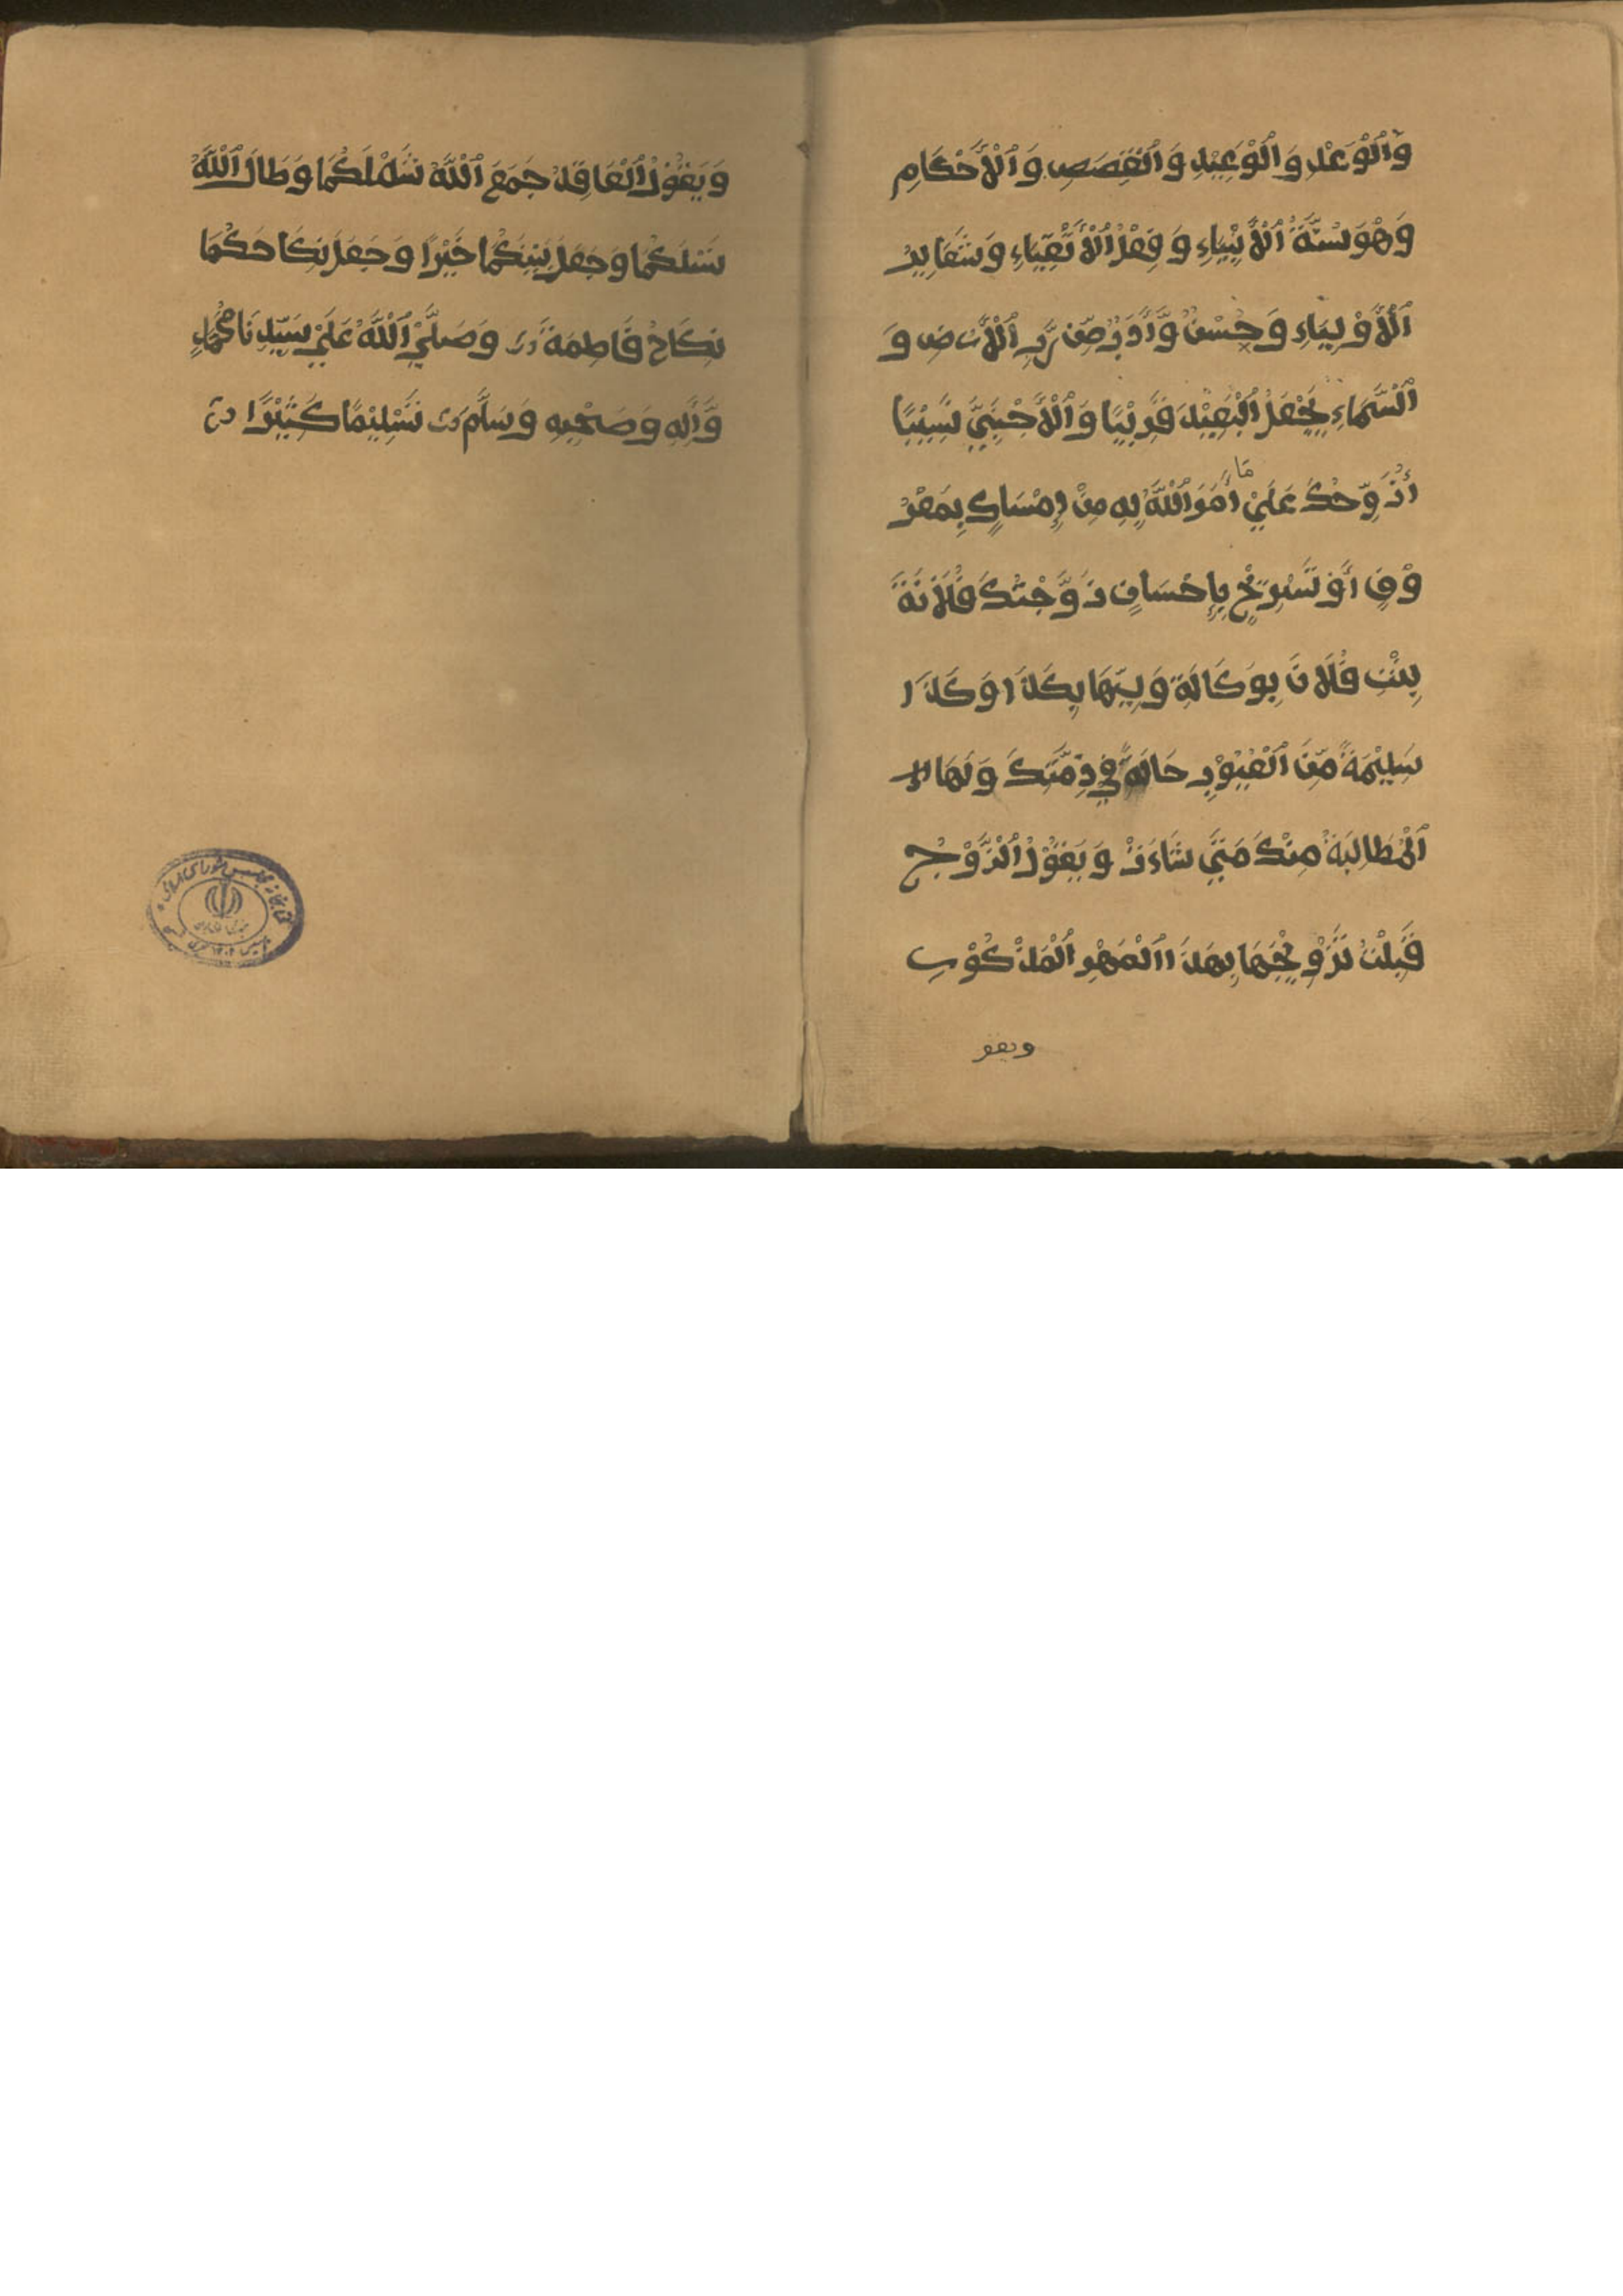 وَٱلْوَعْدِ وَٱلْوَعِيْدِ وَٱلْقَصَصِ وَٱلْأَحْكَامِ
وَهْوَ سُنَّةُ ٱلْأَنْبِيَاءِ وَفِعْلُ ٱلْأَتْقِيَاءِ وَشَعَايِرُ
ٱلْأَوْلِيَاءِ وَحُسْنُ وَأَدَبُ مِّن رَّبِّ ٱلْأَرْضِ وَ
ٱلسَّمَاءِ يَجْعَلُ ٱلْبَعِيْدَ قَرِيْبًا وَٱلْأَجْنَبِيَّ نَسِيْبًا
أُزَوِّجُكَ عَلَيْ مَا أَمَرَ ٱللَّهُ بِهِ مِنْ إِمْسَاكٍ بِمَعْرُ
وْفٍ أَوْ تَسْرِيْحٍ بِإِحْسَانٍ زَوَّجْتُكَ فُلَانَةَ
بِنْتِ فُلَانَ بِوَكَالَةِ وَلِيِّهَا بِكَذَا وَكَذَا
سَلِيْمَةً مِّنَ ٱلْعُيُوْبِ حَالَةً فِيْ ذِمَّتِكَ وَلَهَا
ٱلْمُطَالَبَةُ مِنْكَ مَتَيَ شَاءَتْ وَيَقُوْلُ ٱلزَّوْجُ
قَبِلْتُ تَزْوِيْجَهَا بِهَذَا ٱلْمَهْرِ ٱلْمَذْكُوْرِ
ويقو
وَيَقُوْلُ ٱلْعَاقِدُ جَمَعَ ٱللَّهُ شَمْلَكُمَا وَطَالَ ٱللَّهُ
نَسْلَكُمَا وَجَعَلَ بَيْنَكُمَا خَيْرًا وَجَعَلَ نِكَاحَكُمَا
نِكَاحُ فَاطِمَةَ وَصَلَّيْ ٱللَّهُ عَلَيْ سَيِّدِنَا مُحَمَّدٍ
وَّأَلِهِ وَصَحْبِهِ وَسَلَّمَ تَسْلِيْمًا كَثِيْرًا